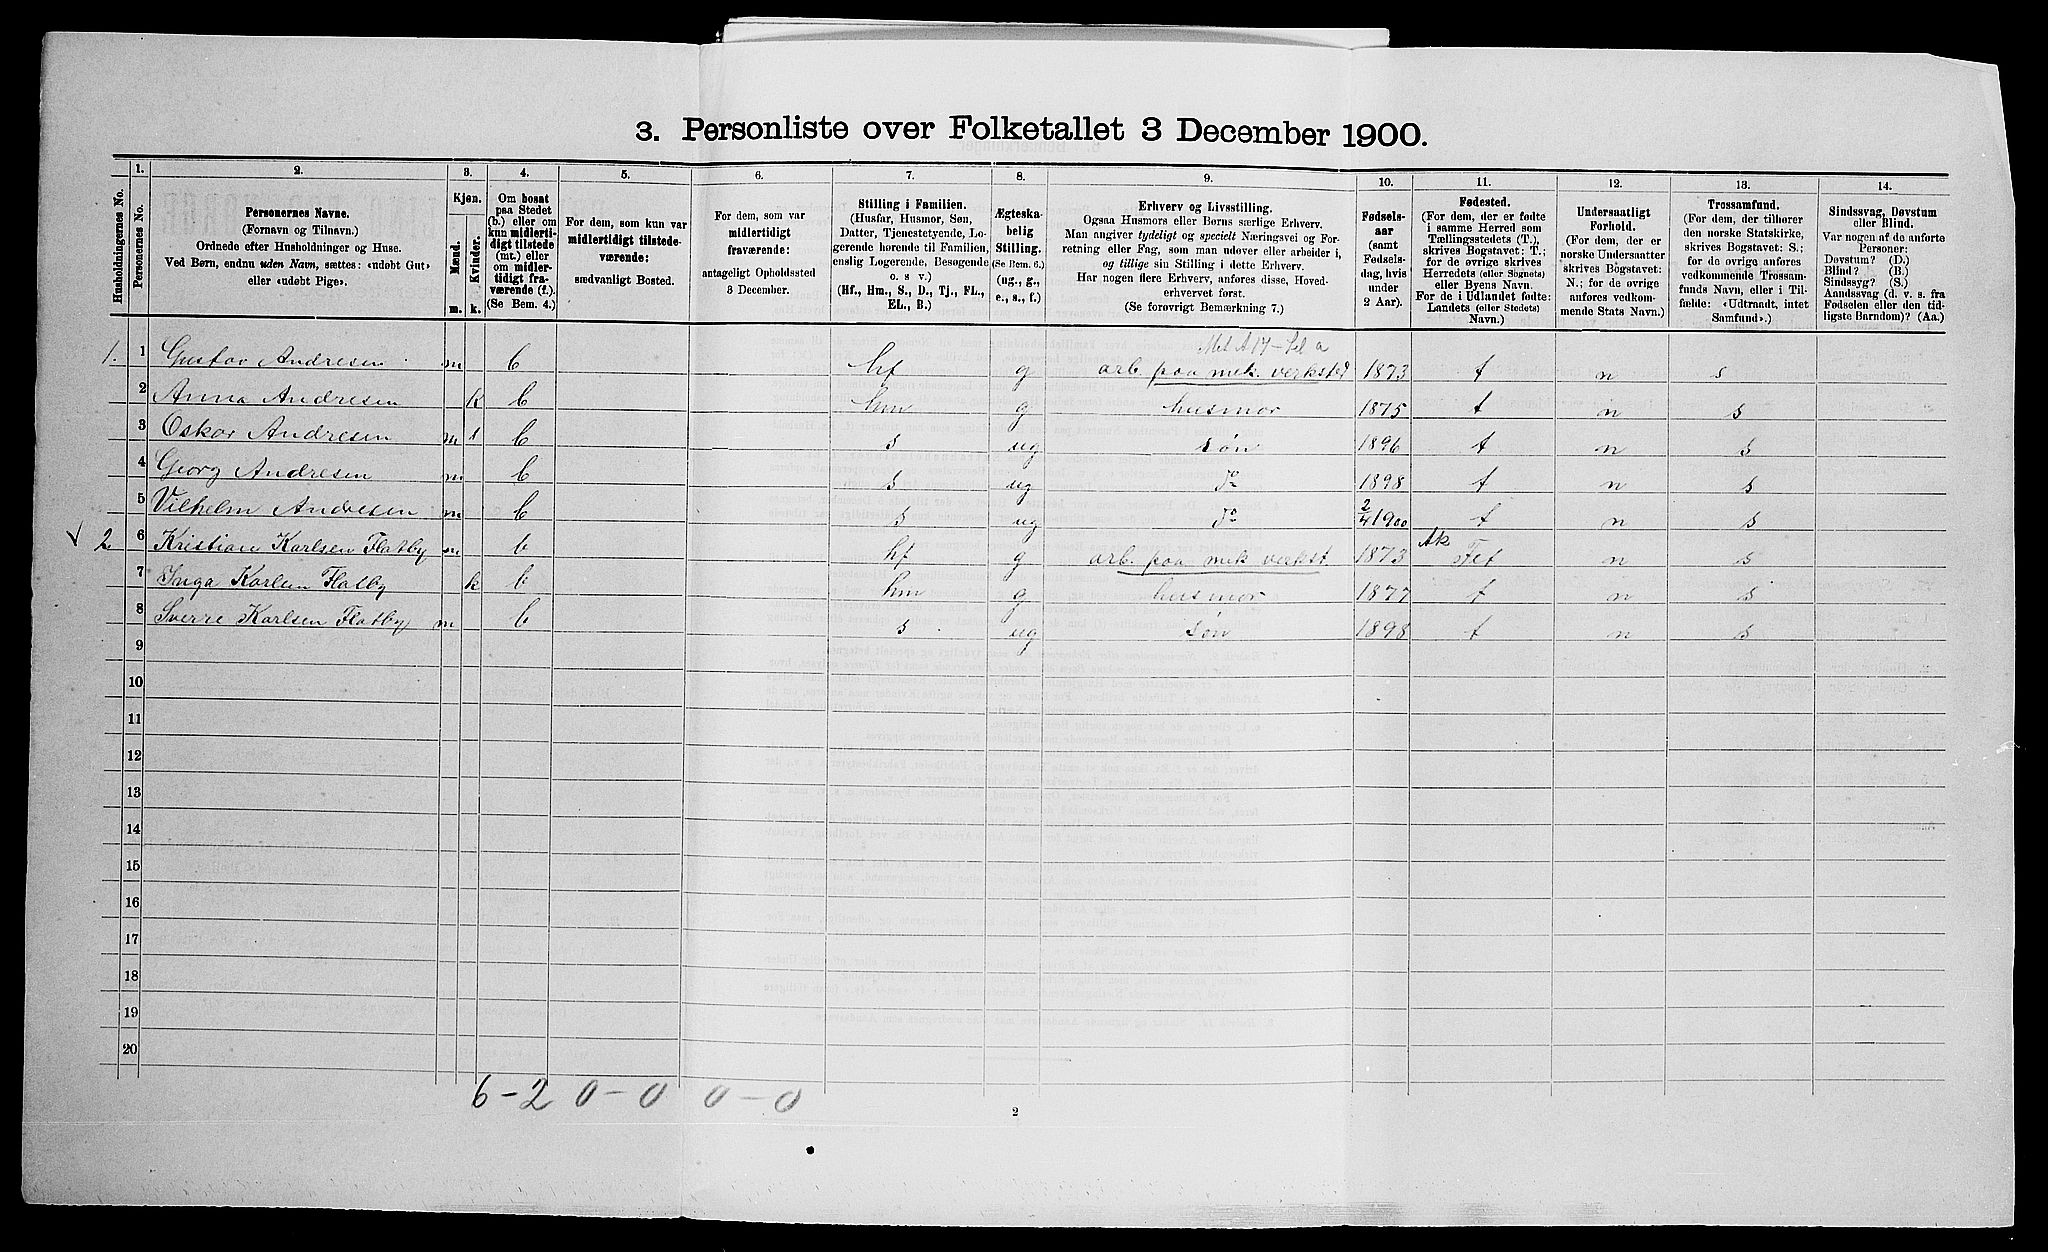 3. Personliste over Folketallet 3 December 1900.
Husholdningernes No.
1.
Personernes No.
2.
Personernes Navne.
(Fornavn og Tilnavn.)
Ordnede efter Husholdninger og Huse.
Ved Børn, endnu uden Navn, sættes: «udøbt Gut»
eller «udøbt Pige».
3.
Kjøn.
Mænd.
Kvinder.
m. k.
4.
Om bosat
paa Stedet
(b.) eller om
kun midlerti-
digt tilstede
(mt.) eller
om midler-
tidigt fra-
værende (f.).
(Se Bem. 4.)
5.
For dem, som kun var
midlertidigt tilstede-
værende:
sædvanligt Bosted.
6.
For dem, som var
midlertidigt
fraværende:
antageligt Opholdssted
3 December.
7.
Stilling i Familien.
(Husfar, Husmor, Søn,
Datter, Tjenestetyende, Lo-
gerende hørende til Familien,
enslig Logerende, Besøgende
o. s v.)
(Hf., Hm., S., D., Tj., FL.,
EL., B.)
8.
Ægteska-
belig
Stilling.
(Se Bem. 6.)
(ug., g.,
e., s., f.)
9.
Erhverv og Livsstilling.
Ogsaa Husmors eller Børns særlige Erhverv.
Man angiver tydeligt og specielt Næringsvei og For-
retning eller Fag, som man udøver eller arbeider i,
og tillige sin Stilling i dette Erhverv.
Har nogen flere Erhverv, anføres disse, Hoved-
erhvervet først.
(Se forøvrigt Bemærkning 7.)
10.
Fødsels-
aar
(samt
Fødsels-
dag, hvis
under
2 Aar).
11.
Fødested.
(For dem, der er fødte
i samme Herred som
Tællingsstedets (T.),
skrives Bogstavet: T.;
for de øvrige skrives
Herredets (eller Sognets)
eller Byens Navn.
For de i Udlandet fødte:
Landets (eller Stedets)
Navn.)
12.
Undersaatligt
Forhold.
(For dem, der er
norske Undersaatter
skrives Bogstavet:
N.; for de øvrige
anføres vedkom-
mende Stats Navn.)
13.
Trossamfund.
(For dem, der tilhører
den norske Statskirke,
skrives Bogstavet: S.;
for de øvrige anføres
vedkommende Trossam-
funds Navn, eller i Til-
fælde: «Udtraadt, intet
Samfund».)
14.
Sindssvag, Døvstum
eller Blind.
Var nogen af de anførte
Personer:
Døvstum? (D.)
Blind? (B.)
Sindssyg? (S.)
Aandssvag (d. v. s. fra
Fødselen eller den tid-
ligste Barndom)? (Aa.)
1. 1 Gustav Andresen m b hf g arb. paa mek. verksted 1873 t n s
2 Anna Andresen k b hm g husmor 1875 t n s
3 Oskar Andresen m 1 b s ug søn 1896 t n s
4 Georg Andresen m b s ug do 1898 t n s
5 Vilhelm Andresen m b s ug do 2/4 1900 t n s
2 6 Kristian Karlsen Flatby m b hf g arb. paa mek verkst. 1873 Ak Fet n s
7 Inga Karlsen Flatby k b hm g husmor 1877 t n s
8 Sverre Karlsen Flatby m b s ug søn 1898 t n s
9
10
11
12
13
14
15
16
17
18
19
20
6-2 0-0 0-0
2